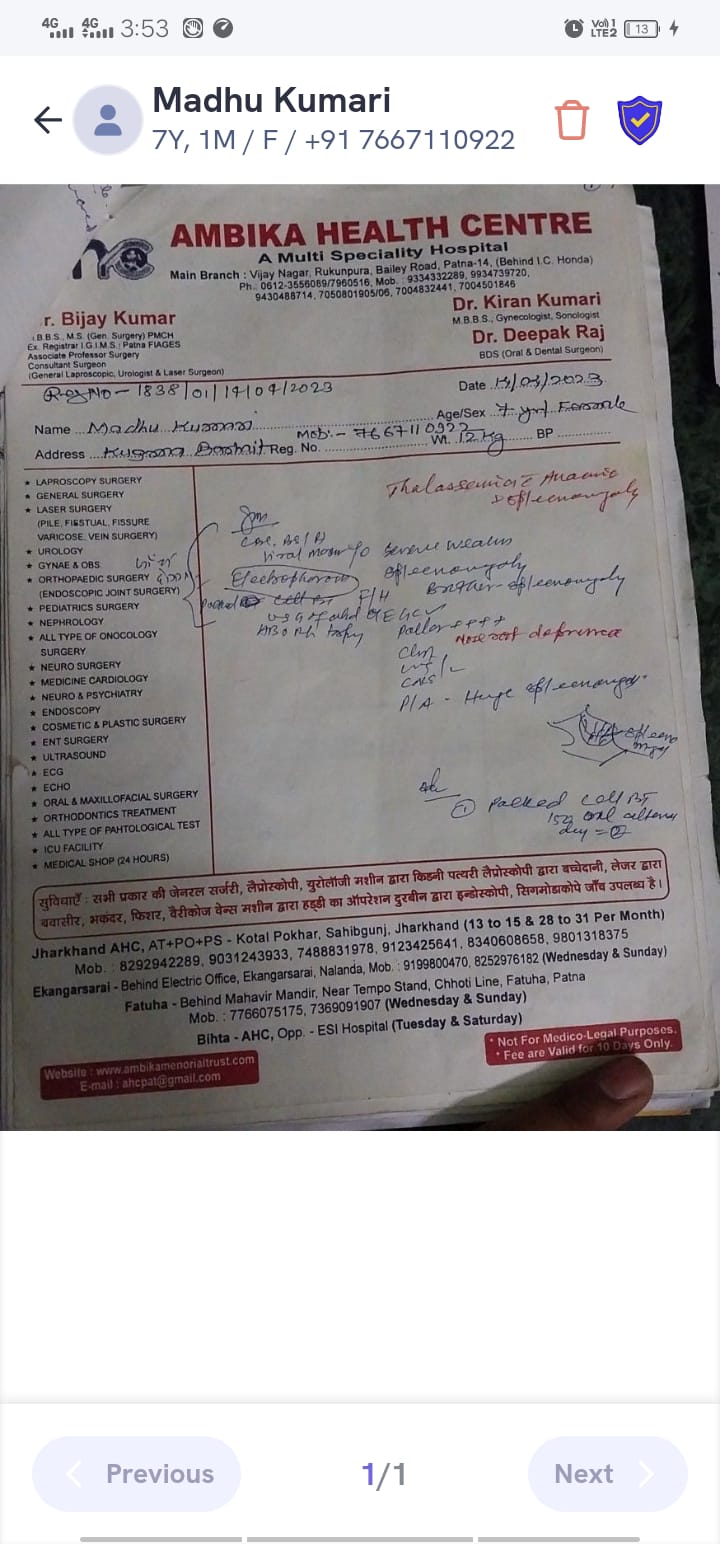 4G 4G 3:53 Vol) 1 LTE2 13
Madhu Kumari
7Y, 1M / F / +91 7667110922
AMBIKA HEALTH CENTRE
A Multi Speciality Hospital
Main Branch : Vijay Nagar, Rukunpura, Bailey Road, Patna-14, (Behind I.C. Honda)
Ph.: 0612-3556089/7960516, Mob. : 9334332289, 9934739720,
9430488714, 7050801905/06, 7004832441, 7004501846
r. Bijay Kumar
.B.B.S., M.S. (Gen. Surgery) PMCH
Ex. Registrar I.G.I.M.S. Patna FIAGES
Associate Professor Surgery
Consultant Surgeon
(General Laproscopic, Urologist & Laser Surgeon)
Dr. Kiran Kumari
M.B.B.S., Gynecologist, Sonologist
Dr. Deepak Raj
BDS (Oral & Dental Surgeon)
Reg No - 1838/01/14/04/2023
Date
Name Madhu Kumari Age/Sex 7 yrs Female
Mob:- 7667110922
Address Reg. No. Wt. 12 kg BP
★ LAPROSCOPY SURGERY
★ GENERAL SURGERY
★ LASER SURGERY
(PILE, FIESTUAL, FISSURE
VARICOSE, VEIN SURGERY)
★ UROLOGY
★ GYNAE & OBS
★ ORTHOPAEDIC SURGERY
(ENDOSCOPIC JOINT SURGERY)
★ PEDIATRICS SURGERY
★ NEPHROLOGY
★ ALL TYPE OF ONOCOLOGY
SURGERY
★ NEURO SURGERY
★ MEDICINE CARDIOLOGY
★ NEURO & PSYCHIATRY
★ ENDOSCOPY
★ COSMETIC & PLASTIC SURGERY
★ ENT SURGERY
★ ULTRASOUND
★ ECG
★ ECHO
★ ORAL & MAXILLOFACIAL SURGERY
★ ORTHODONTICS TREATMENT
★ ALL TYPE OF PAHTOLOGICAL TEST
★ ICU FACILITY
★ MEDICAL SHOP (24 HOURS)
Thalassemia Anaemia
Viral c/o Severe weakness
Electrophoresis
F/H Brother -
Pallor ++++
Nose
P/A - Huge
① Packed cell BT
सुविधाएँ : सभी प्रकार की जेनरल सर्जरी, लैप्रोस्कोपी, युरोलॉजी मशीन द्वारा किडनी पत्थरी लैप्रोस्कोपी द्वारा बच्चेदानी, लेजर द्वारा
बवासीर, भकंदर, फिशर, वैरीकोज वेन्स मशीन द्वारा हड्डी का ऑपरेशन दुरबीन द्वारा इन्डोस्कोपी, सिगमोडाकोपे जाँच उपलब्ध है।
Jharkhand AHC, AT+PO+PS - Kotal Pokhar, Sahibgunj, Jharkhand (13 to 15 & 28 to 31 Per Month)
Mob. : 8292942289, 9031243933, 7488831978, 9123425641, 8340608658, 9801318375
Ekangarsarai - Behind Electric Office, Ekangarsarai, Nalanda, Mob. : 9199800470, 8252976182 (Wednesday & Sunday)
Fatuha - Behind Mahavir Mandir, Near Tempo Stand, Chhoti Line, Fatuha, Patna
Mob. : 7766075175, 7369091907 (Wednesday & Sunday)
Bihta - AHC, Opp. - ESI Hospital (Tuesday & Saturday)
Website : www.ambikamenorialtrust.com
E-mail : ahcpat@gmail.com
* Not For Medico-Legal Purposes.
* Fee are Valid for 10 Days Only.
Previous 1/1 Next